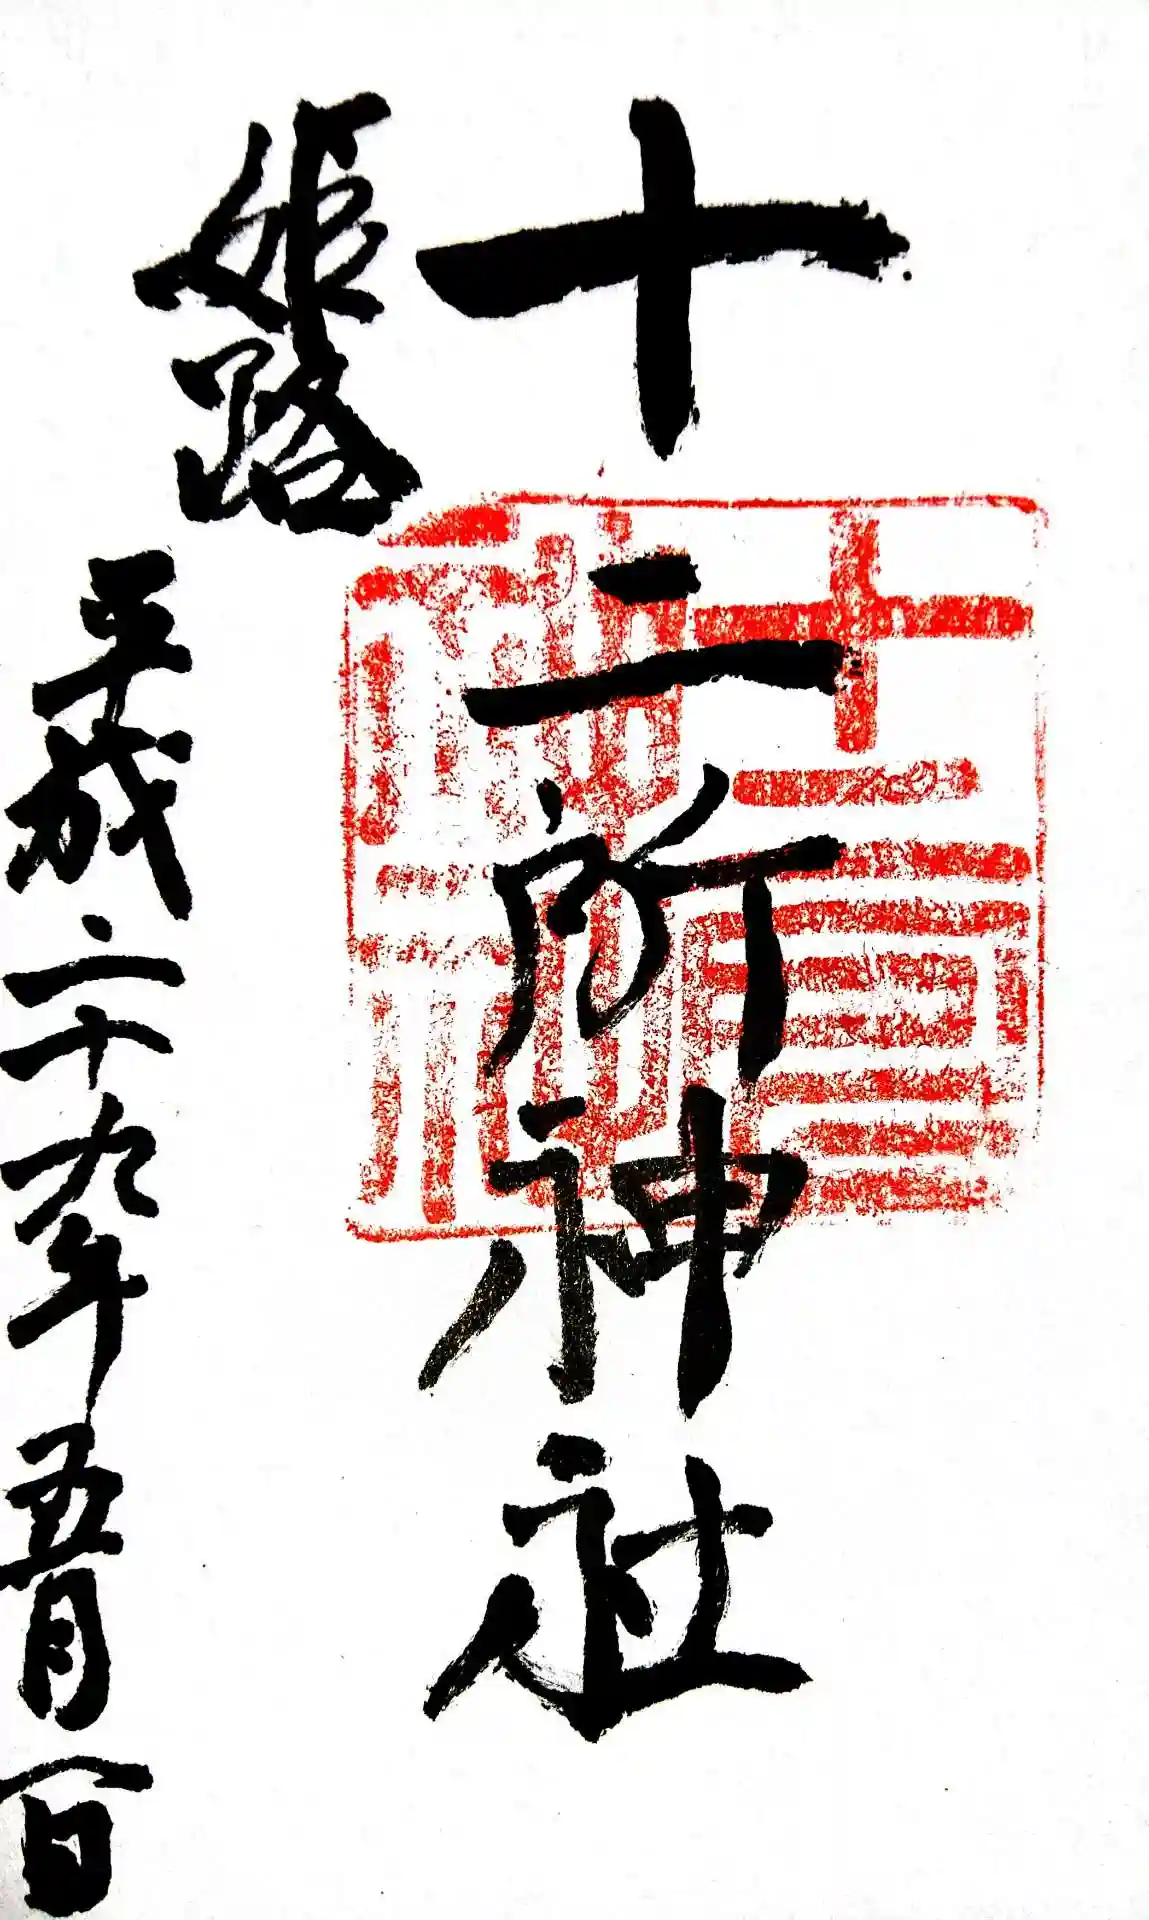 十二所神社
姫路
平成二十九年五月一日